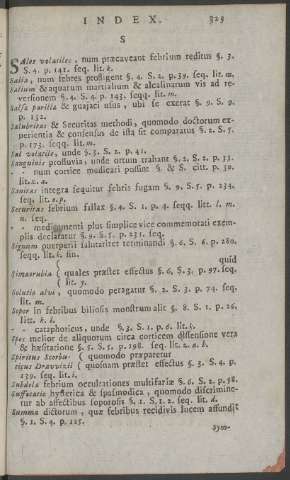 INDEX. 829
S
SAles volatiles, num præcaveant febrium reditus §. 3.
S. 4. p. 141. seq. lit. k.
Salia, num febres profligent §. 4. S. 2. p. 39. seq. lit. m.
Salium & aquarum martialium & alcalinarum vis ad re-
versionem §. 4. S. 4. p. 143. seqq. lit. m.
Salsa parilla & guajaci usus, ubi se exerat §. 9. S. 9.
p. 132.
Salubritas & Securitas methodi, quomodo doctorum ex-
perientia & consensus de ista sit comparatus §. 2. S. 7.
p. 173. seqq. lit. m.
Sal volatile, unde §. 3. S. 2. p. 41.
Sanguinis profluvia, unde ortum trahant §. 2. S. 2. p. 33.
- num cortice medicari possint § & S. citt. p. 30.
lit. z. a.
Sanitas integra sequitur febris fugam §. 9. S. 7. p. 234.
seq. lit. o. p.
Securitas febrium fallax §. 4. S. 1. p. 4. seqq. litt. l. m.
n. seq.
- medicamenti plus simplice vice commemorati exem-
plis declaratur §. 9. S. 7. p. 231. seq.
Signum puerperii salutariter terminandi §. 6. S. 6. p. 280.
seqq. lit. k. fin.
quid
Simarubia ( quales præstet effectus §. 6. S. 3. p. 97. seq.
( lit. y.
Solutio alvi, quomodo peragatur §. 2. S. 3. p. 74. seq.
lit. m.
Sopor in febribus biliosis monstrum alit §. 8. S. 1. p. 26.
litt. k. l.
- cataphoricus, unde §. 3. S. 1. p. 6. lit. q.
Spes melior de aliquorum circa corticem dissensione vera
& hæsitatione §. 5. S. 5. p. 198. seq. litt. z. a. b.
Spiritus Scorbu- ( quomodo præparetur
ticus Drawizii ( quosnam præstet effectus §. 3. S. 4. p.
139. seq. lit. i.
Subdola febrium occultationes multifariæ §. 6. S. 2. p. 58.
Suffocatio hysterica & spasmodica, quomodo discrimine-
tur ab affectibus soporosis §. 1. S. 1. 2. seq. lit. d.
Summa dictorum, quæ febribus recidivis lucem affundit
§. 1. S. 4. p. 125.
Sym-